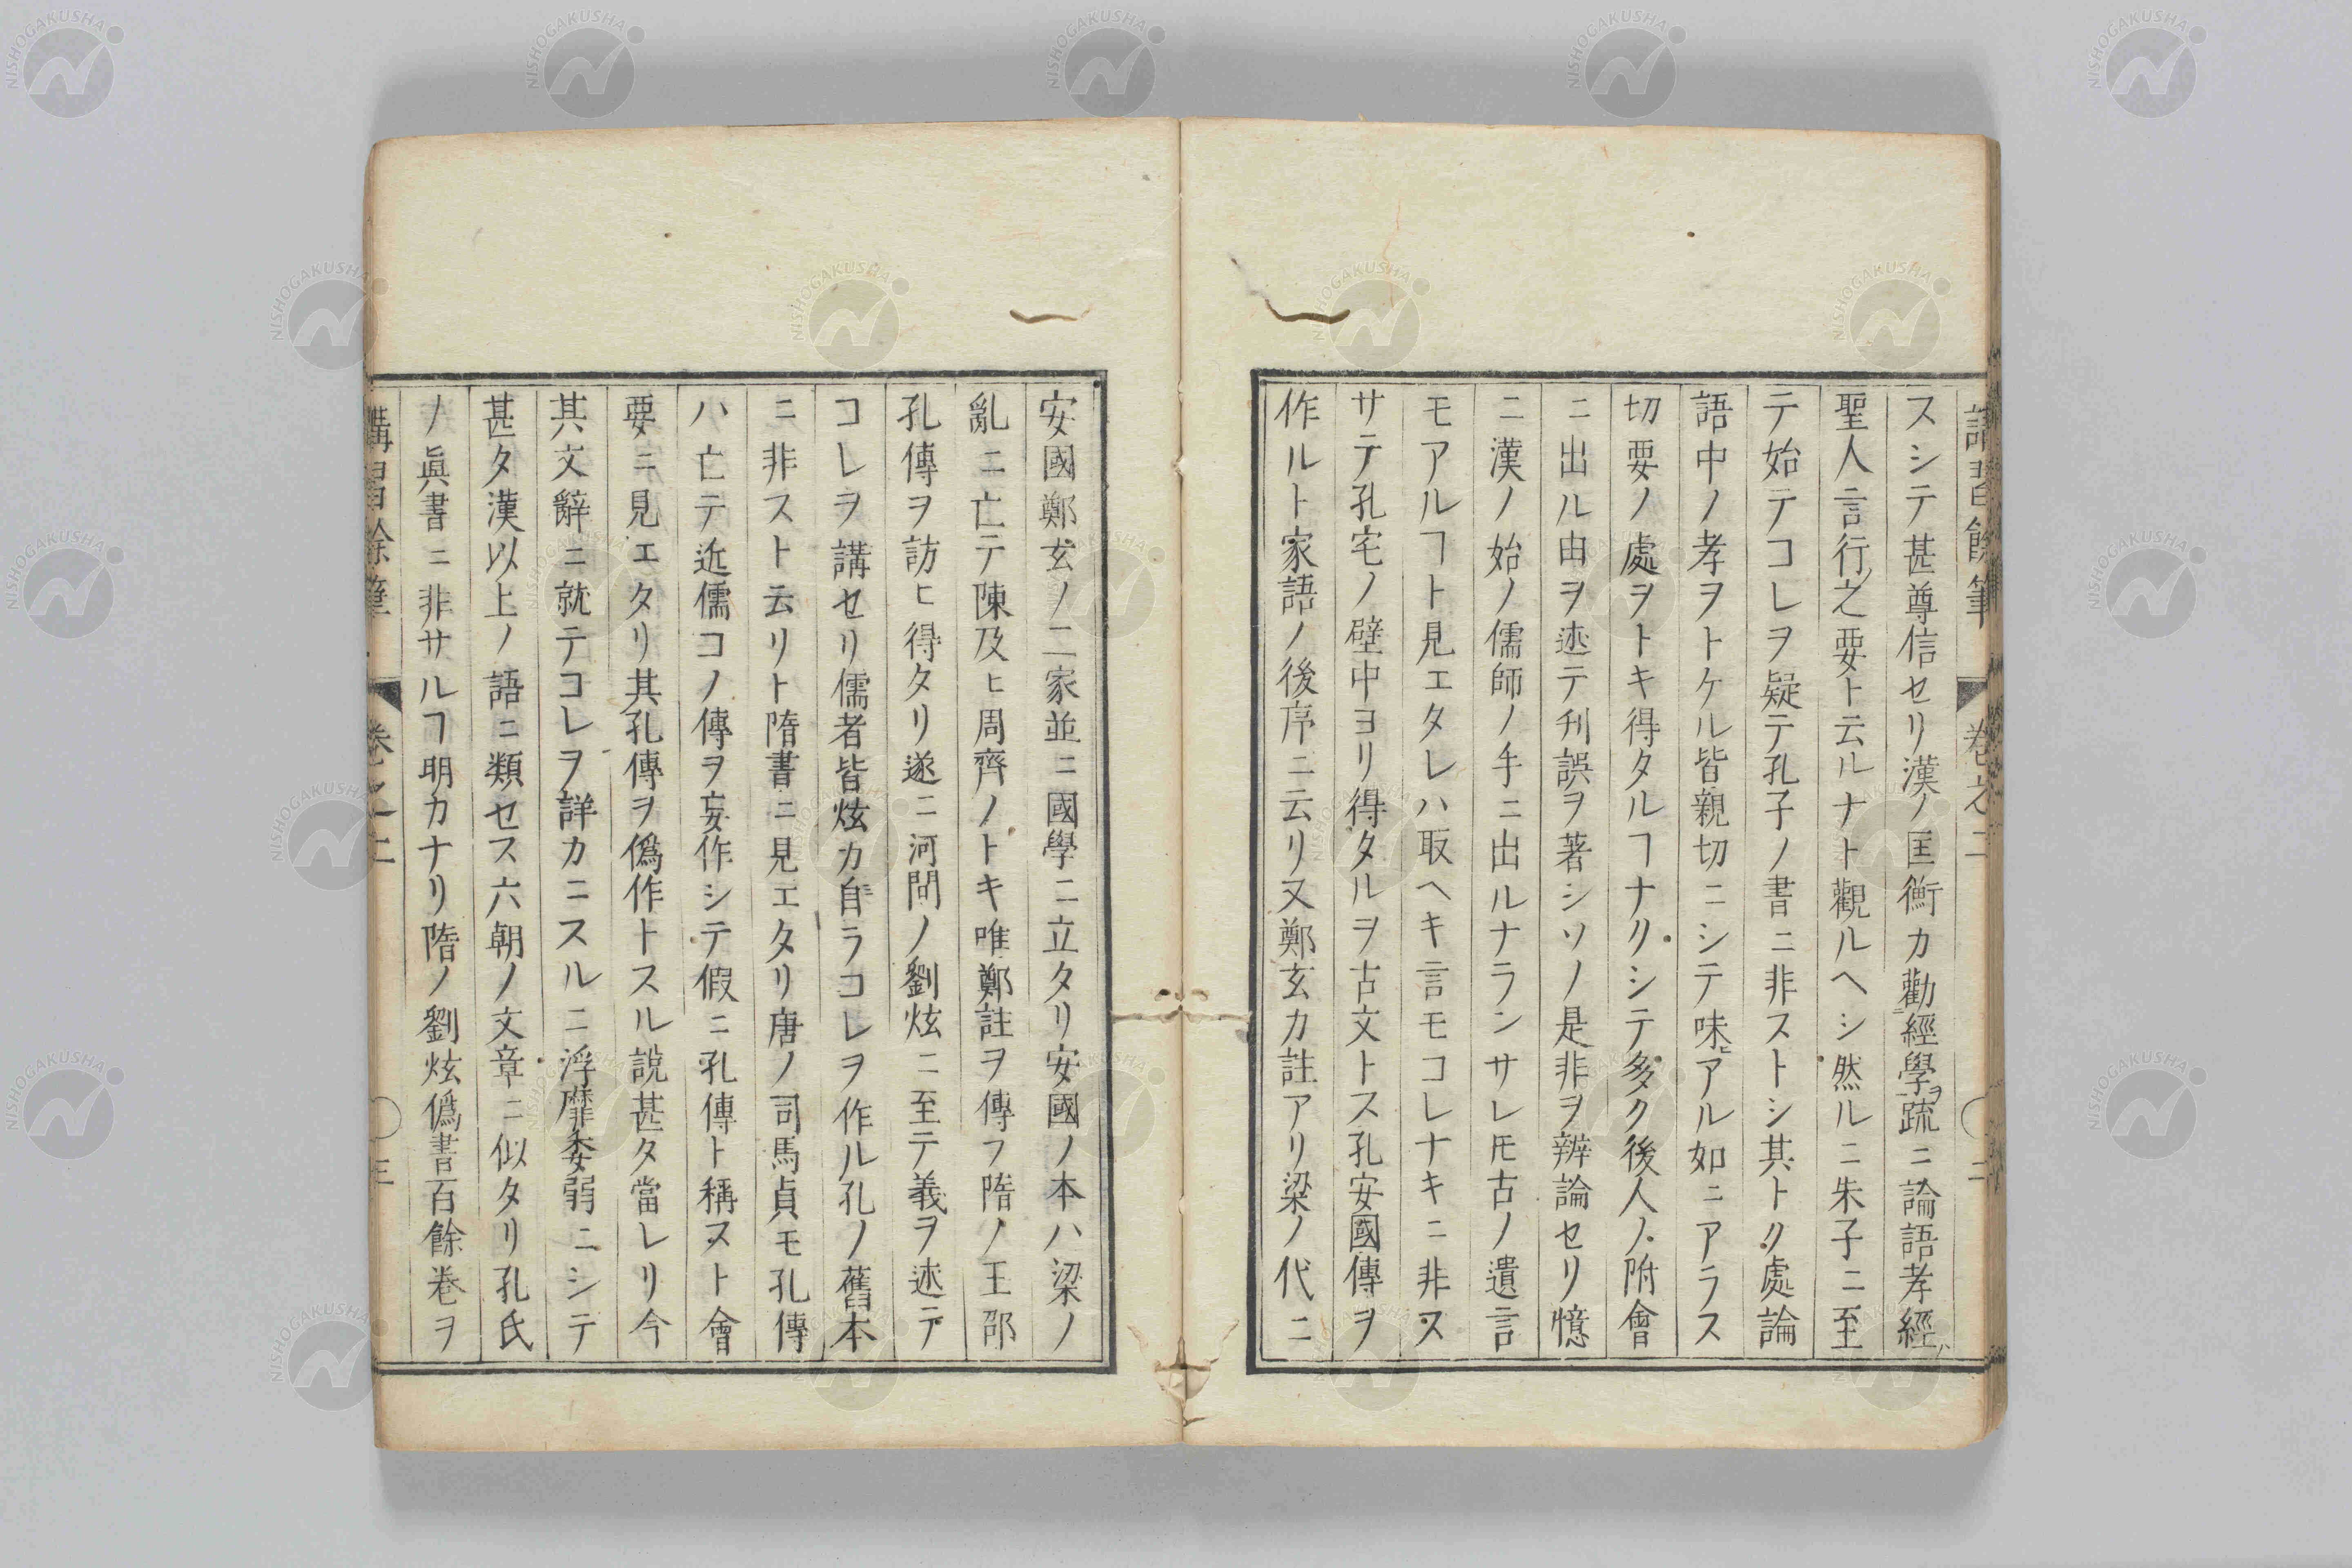 講習餘筆 卷之二 二
スシテ甚尊信セリ漢ノ匡衡カ勸經學ヲ疏ニ論語孝經ハ
聖人言行ノ之要ト云ルナト觀ルヘシ然ルニ朱子ニ至
テ始テコレヲ疑テ孔子ノ書ニ非ストシ其トク處論
語中ノ孝ヲトケル皆親切ニシテ味ヒアル如ニアラス
切要ノ處ヲトキ得タルヿナクシテ多ク後人ノ附會
ニ出ル由ヲ述テ刋誤ヲ著シソノ是非ヲ辨論セリ憶
ニ漢ノ始ノ儒師ノ手ニ出ルナランサレ𪜈古ノ遺言
モアルヿト見エタレハ取ヘキ言モコレナキニ非ス
サテ孔宅ノ壁中ヨリ得タルヲ古文トス孔安國傳ヲ
作ルト家語ノ後序ニ云リ又鄭玄カ註アリ梁ノ代ニ
安國鄭玄ノ二家並ニ國學ニ立タリ安國ノ本ハ梁ノ
亂ニ亡テ陳及ヒ周齊ノトキ唯鄭註ヲ傳フ隋ノ王邵
孔傳ヲ訪ヒ得タリ遂ニ河間ノ劉炫ニ至テ義ヲ述テ
コレヲ講セリ儒者皆炫カ自ラコレヲ作ル孔ノ舊本
ニ非スト云リト隋書ニ見エタリ唐ノ司馬貞モ孔傳
ハ亡テ近儒コノ傳ヲ妄作シテ假ニ孔傳ト稱スト會
要ニ見エタリ其孔傳ヲ僞作トスル說甚タ當レリ今
其文辭ニ就テコレヲ詳カニスルニ浮靡委弱ニシテ
甚タ漢以上ノ語ニ類セス六朝ノ文章ニ似タリ孔氏
ノ眞書ニ非サルヿ明カナリ隋ノ劉炫僞書百餘巻ヲ
講習餘筆 卷之二 三